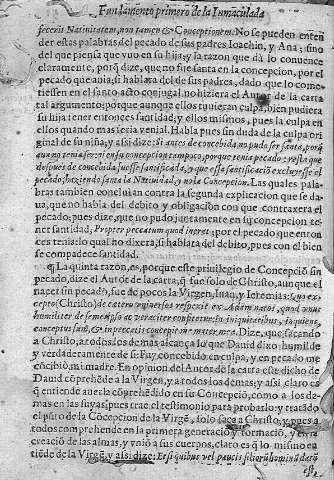 Fundamento primero de la Inmaculada
feceris Natiuitatem, non tamen & Conceptionem. No se pueden enten
der estas palabras del pecado de sus padres Ioachin, y Ana; sino
del que piensa que vuo en su hija; y la razon que dà lo conuence
claramente, pòr dize, que no fue santa en la concepcion, por el
pecado que auia; si hablara del de sus padres, dado que lo come-
tiessen en el santo acto conjugal no hiziera el Autor de la carta
tal argumento; porque aunque ellos tuuieran culpa, bien pudiera
su hija tener entonces santidad; y ellos mismos, pues la culpa en
ellos quando mas seria venial. Habla pues sin duda de la culpa ori
ginal de su niña; y assi dize: Si antes de concebida no pudo ser santa, porq̃
aun no tenia ser: ni en su concepcion tampoco, porque tenia pecado: resta que
despues de concebida fuesse santificada, y que essa santificació excluyesse el
pecado; haziendo santa la Natiuidad, y no la Concepcion. Las quales pala-
bras tambien concluian contra la segunda explicacion que se da-
ua, que no habla del debito y obligacion con que contraxera el
pecado; pues dize, que no pudo juntamente en su concepcion te-
ner santidad, Propter peccatum quod inerat; por el pecado que enton
ces tenia: lo qual no dixera, si hablara del debito, pues con èl bien
se compadece santidad.
¶ La quinta razon, es, porque este priuilegio de Concepciõ sin
pecado, dize el Autor de la carta, q̃ fue solo de Christo, aunque el
nacer sin pecado, fue de pocos la Virgen, Iuan, y Ieremias: Quo exce-
pto (Christo) de cetero vniuersos respicit ex Adam natos, quod vnus
humiliter de semetipso ac veraciter confitetur: In iniquitatibus, inquiens,
conceptus sum, & in peccatis concepit me mater mea. Dize, que sacando
a Christo, a todos los demas alcança lo que Dauid dixo humilde
y verdaderamente de si: Fuy concebido en culpa, y en pecado me
cõcibiò mi madre. En opinion del Autor de la carta este dicho de
Dauid cõprehẽde a la Virgẽ, y a todos los demas; y assi claro es
q̃ entiende auerla cõprehendido en su Concepciõ, como a los de-
mas en las suyas; pues trae el testimonio para probarlo; y tratãdo
el pũto de la Cõcepcion de la Virgẽ, solo saca a Christo, y pues a
todos comprehende en la primera generaciõ y formaciõ, y en la
creaciõ de las almas, y vniõ a sus cuerpos, claro es q̃ lo mismo en
tiẽde de la Virgẽ, y assi dize: Etsi quibus vel paucis filiorũ hominũ dero